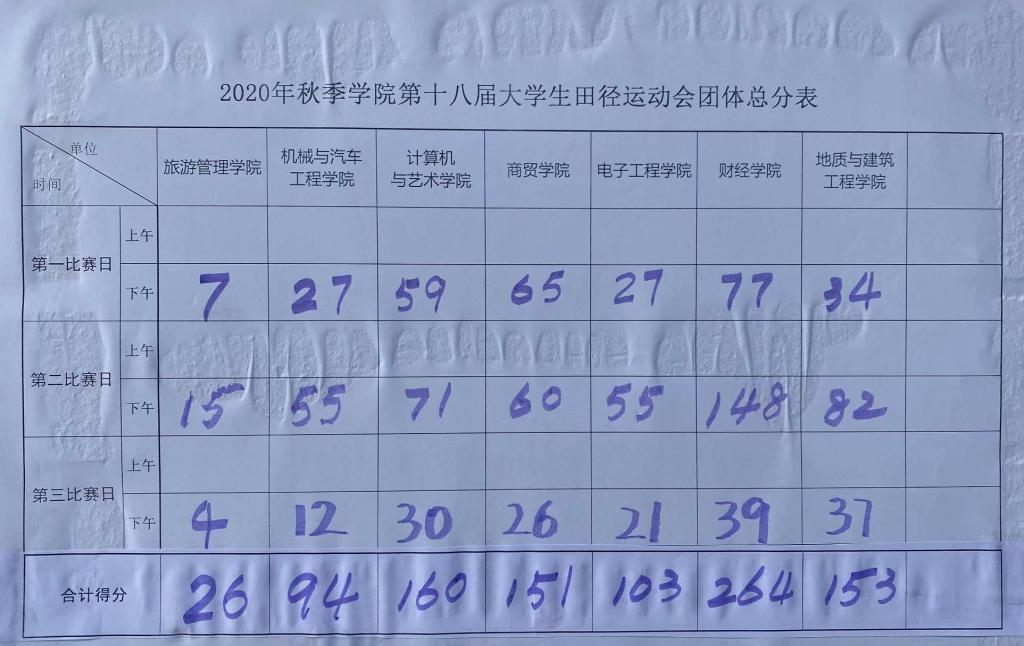 2020年秋季学院第十八届大学生田径运动会团体总分表
单位
时间
旅游管理学院 机械与汽车工程学院 计算机与艺术学院 商贸学院 电子工程学院 财经学院 地质与建筑工程学院
第一比赛日
上午
下午 7 27 59 65 27 77 34
第二比赛日
上午
下午 15 55 71 60 55 148 82
第三比赛日
上午
下午 4 12 30 26 21 39 37
合计得分 26 94 160 151 103 264 153